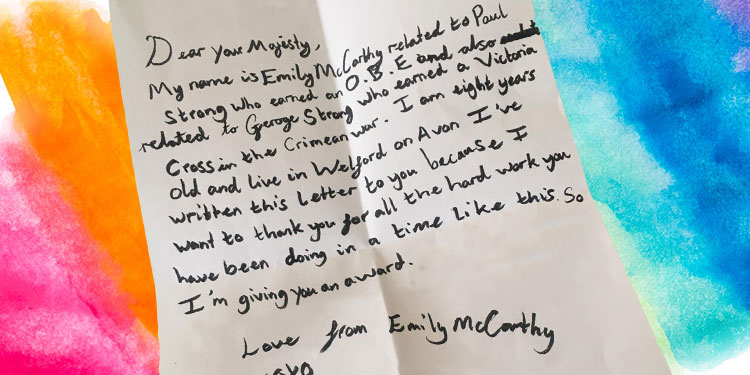 Dear your Majesty,
My name is Emily McCarthy related to Paul
Strong who earned an O.B.E and also
related to Geroge Strong who earned a Victoria
Cross in the Crimean war. I am eight years
old and live in Welford on Avon I've
written this letter to you because I
want to thank you for all the hard work you
have been doing in a time like this. So
I'm giving you an award.
Love from Emily McCarthy